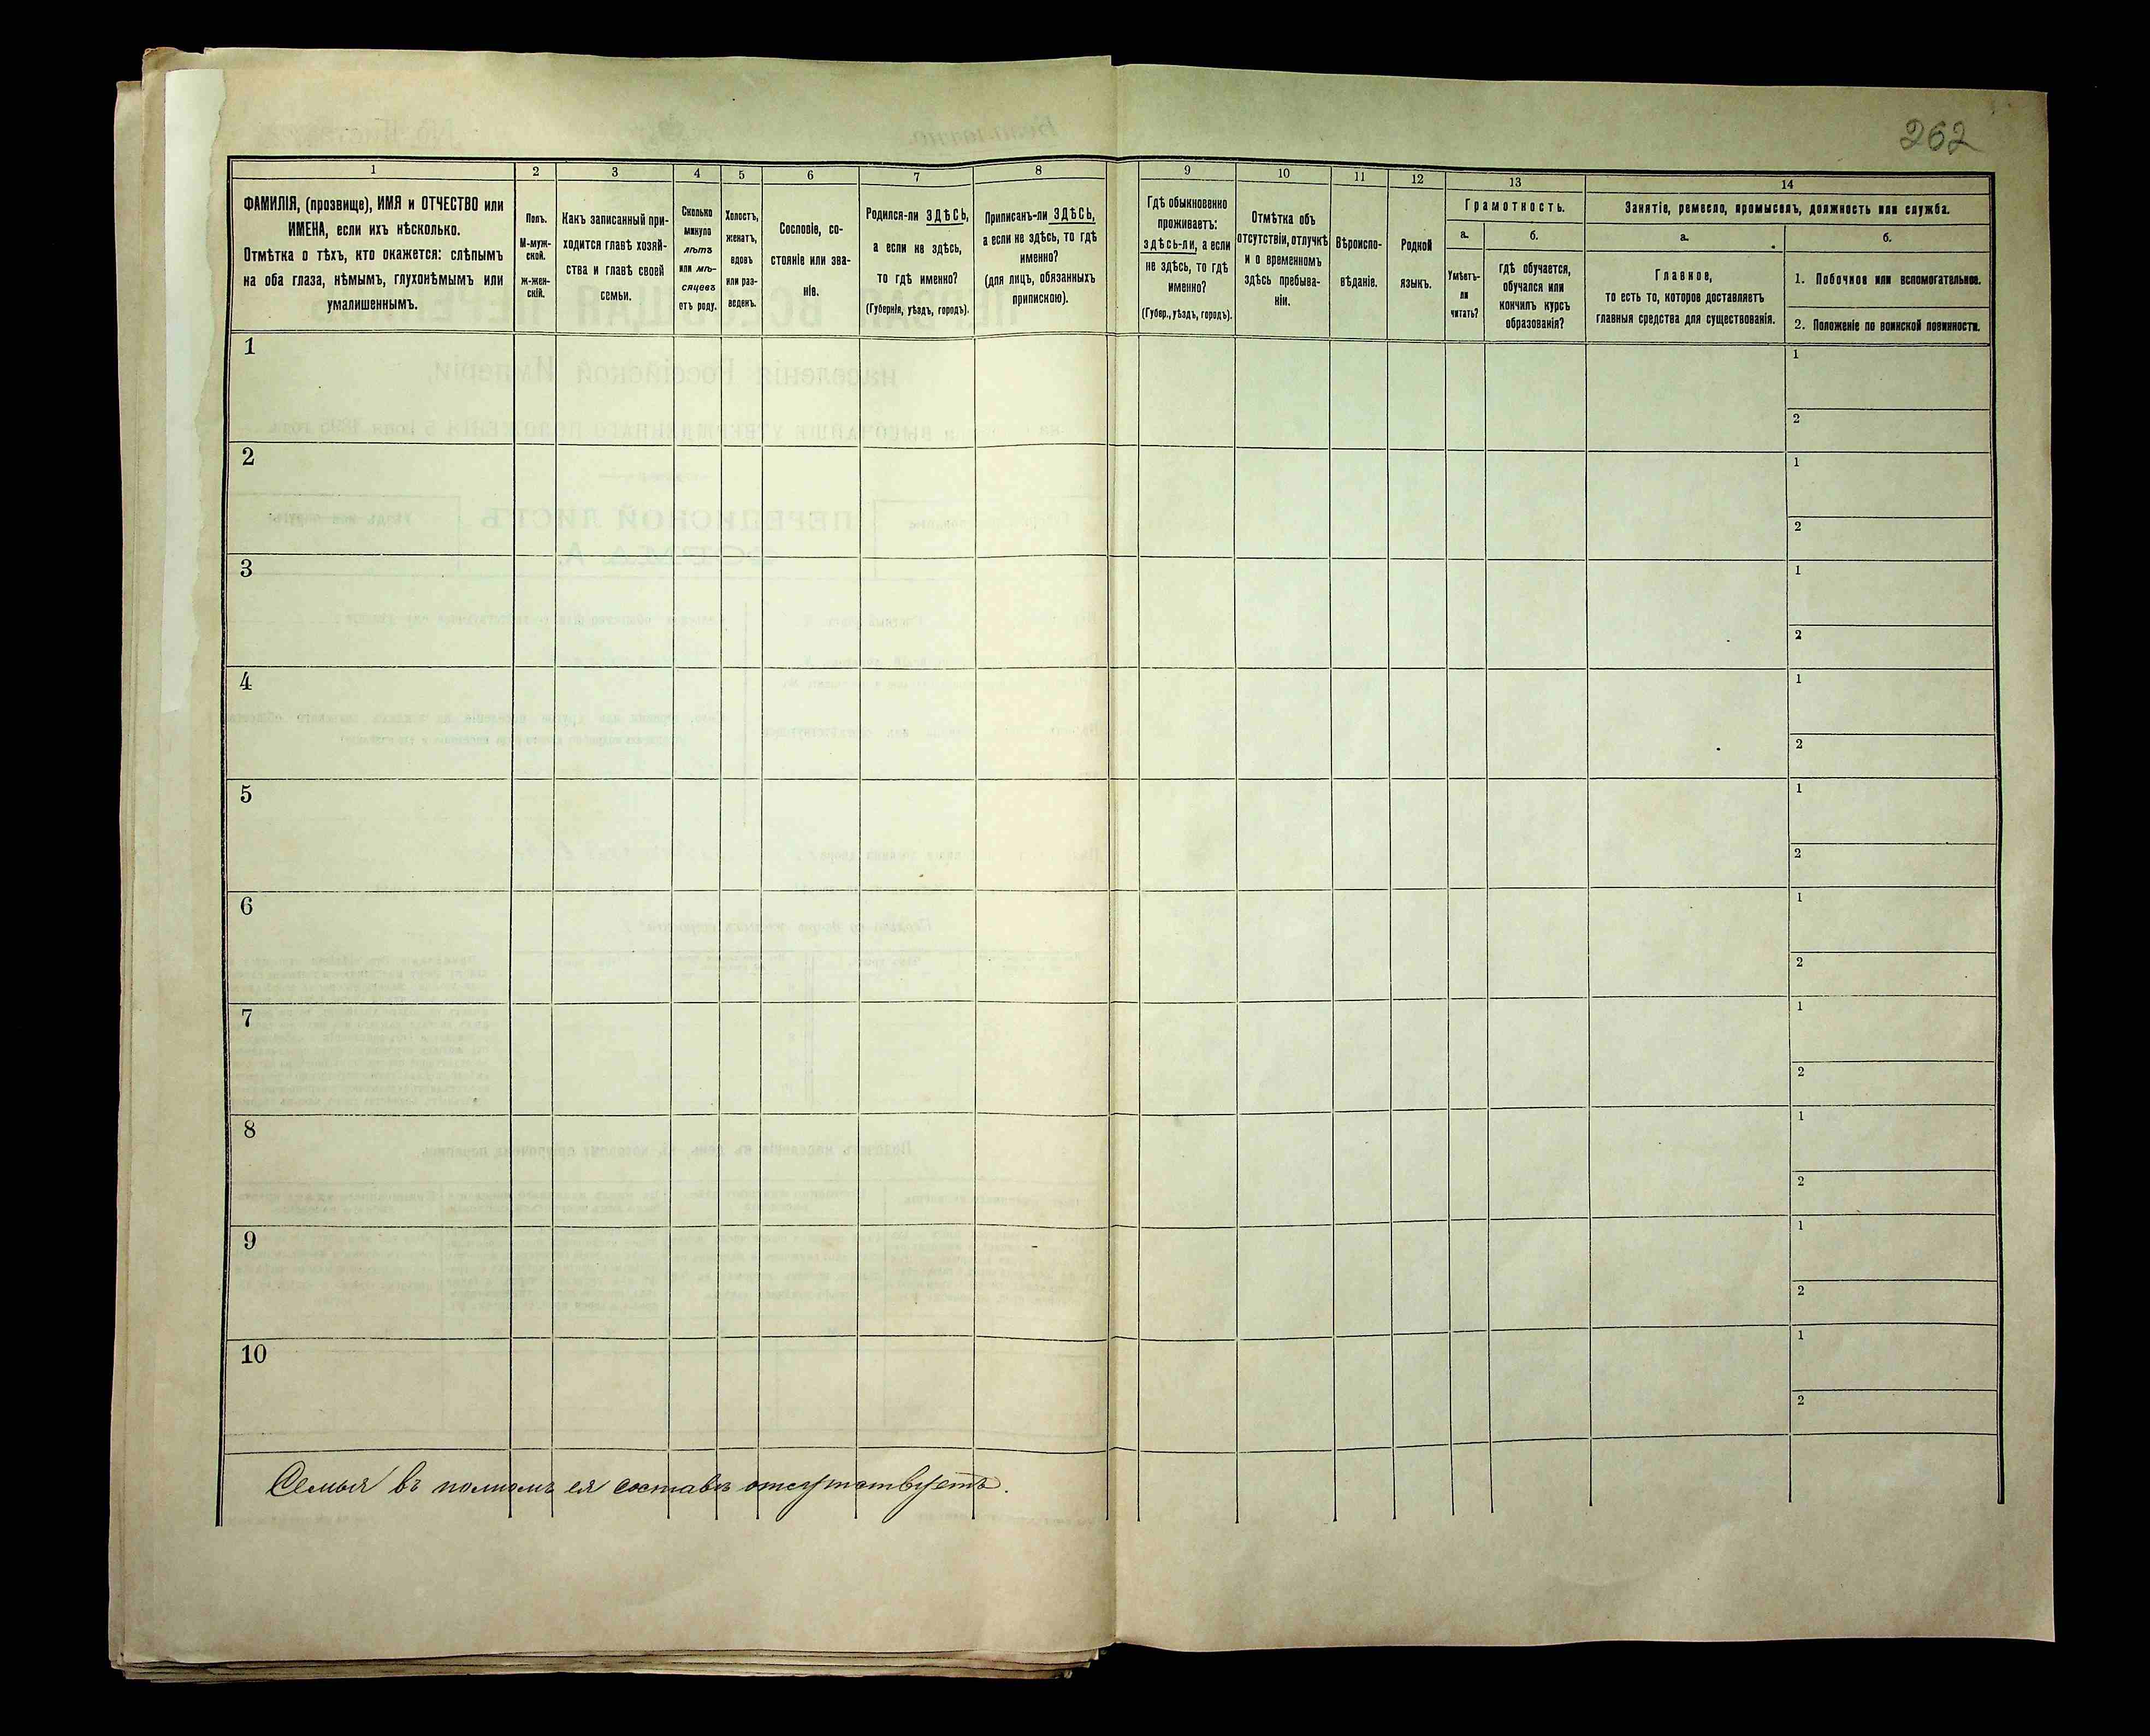 262
1
ФАМИЛІЯ, (прозвище), ИМЯ и ОТЧЕСТВО или
ИМЕНА, если ихъ нѣсколько.
Отмѣтка о тѣхъ, кто окажется: слѣпымъ
на оба глаза, нѣмымъ, глухонѣмымъ или
умалишеннымъ.
2
Полъ.
М-муж-
ской.
ж-жен-
скій.
3
Какъ записанный при-
ходится главѣ хозяй-
ства и главѣ своей
семьи.
4
Сколько
минуло
лѣтъ
или мѣ-
сяцевъ
отъ роду.
5
Холостъ,
женатъ,
вдовъ
или раз-
веденъ.
6
Сословіе, со-
стояніе или зва-
ніе.
7
Родился-ли ЗДѢСЬ,
а если не здѣсь,
то гдѣ именно?
(Губернія, уѣздъ, городъ).
8
Приписанъ-ли ЗДѢСЬ,
а если не здѣсь, то гдѣ
именно?
(для лицъ, обязанныхъ
припискою).
9
Гдѣ обыкновенно
проживаетъ:
здѣсь-ли, а если
не здѣсь, то гдѣ
именно?
(Губер., уѣздъ, городъ).
10
Отмѣтка объ
отсутствіи, отлучкѣ
и о временномъ
здѣсь пребыва-
ніи.
11
Вѣроиспо-
вѣданіе.
12
Родной
языкъ.
13
Грамотность.
а.
Умѣетъ-
ли
читать?
б.
гдѣ обучается,
обучался или
кончилъ курсъ
образованія?
14
Занятіе, ремесло, промыселъ, должность или служба.
а.
Главное,
то есть то, которое доставляетъ
главныя средства для существованія.
б.
1. Побочное или вспомогательное.
2. Положеніе по воинской повинности.
1
1
2
2
1
2
3
1
2
4
1
2
5
1
2
6
1
2
7
1
2
8
1
2
9
1
2
10
1
2
Семья въ полномъ ея составѣ отсутствуетъ.